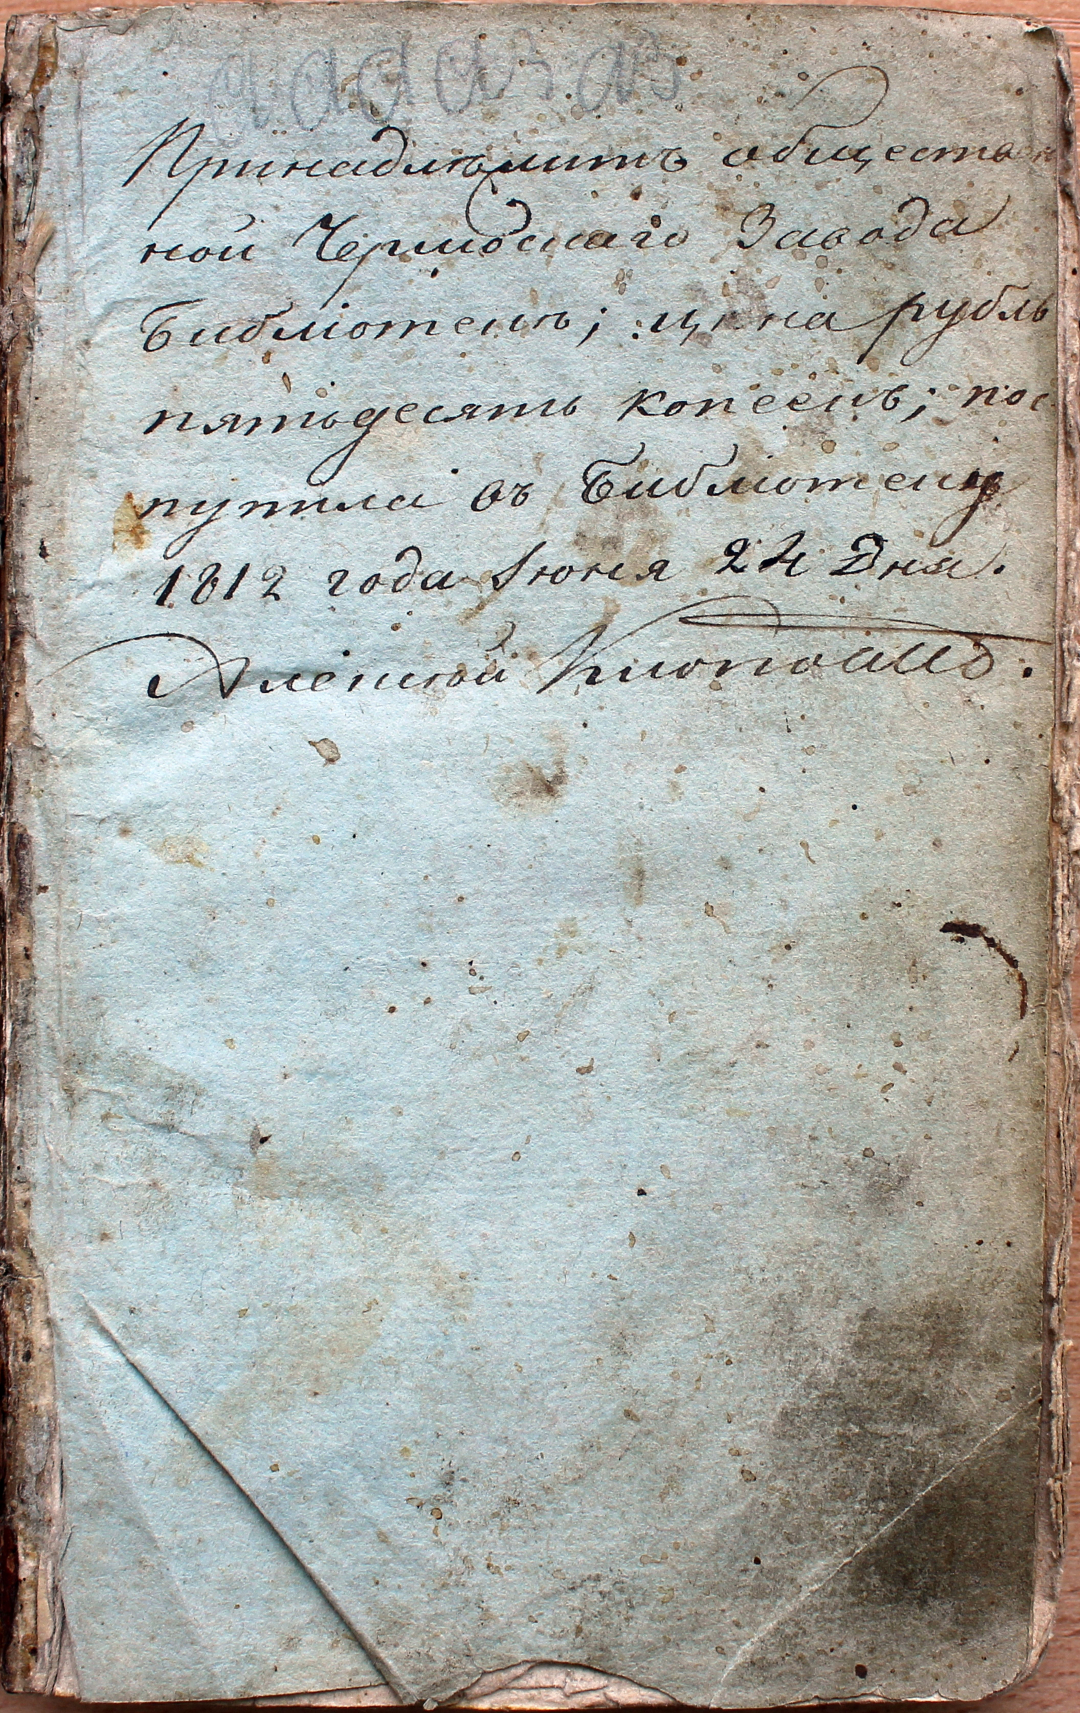 Принадлѣжитъ обществен
ной Чермоскаго Завода
Библіотекѣ; цѣна рубль
пятьдесятъ копеекъ; пос
тупила въ Библіотеку
1812 года Іюня 24 Дня.
Алексѣй